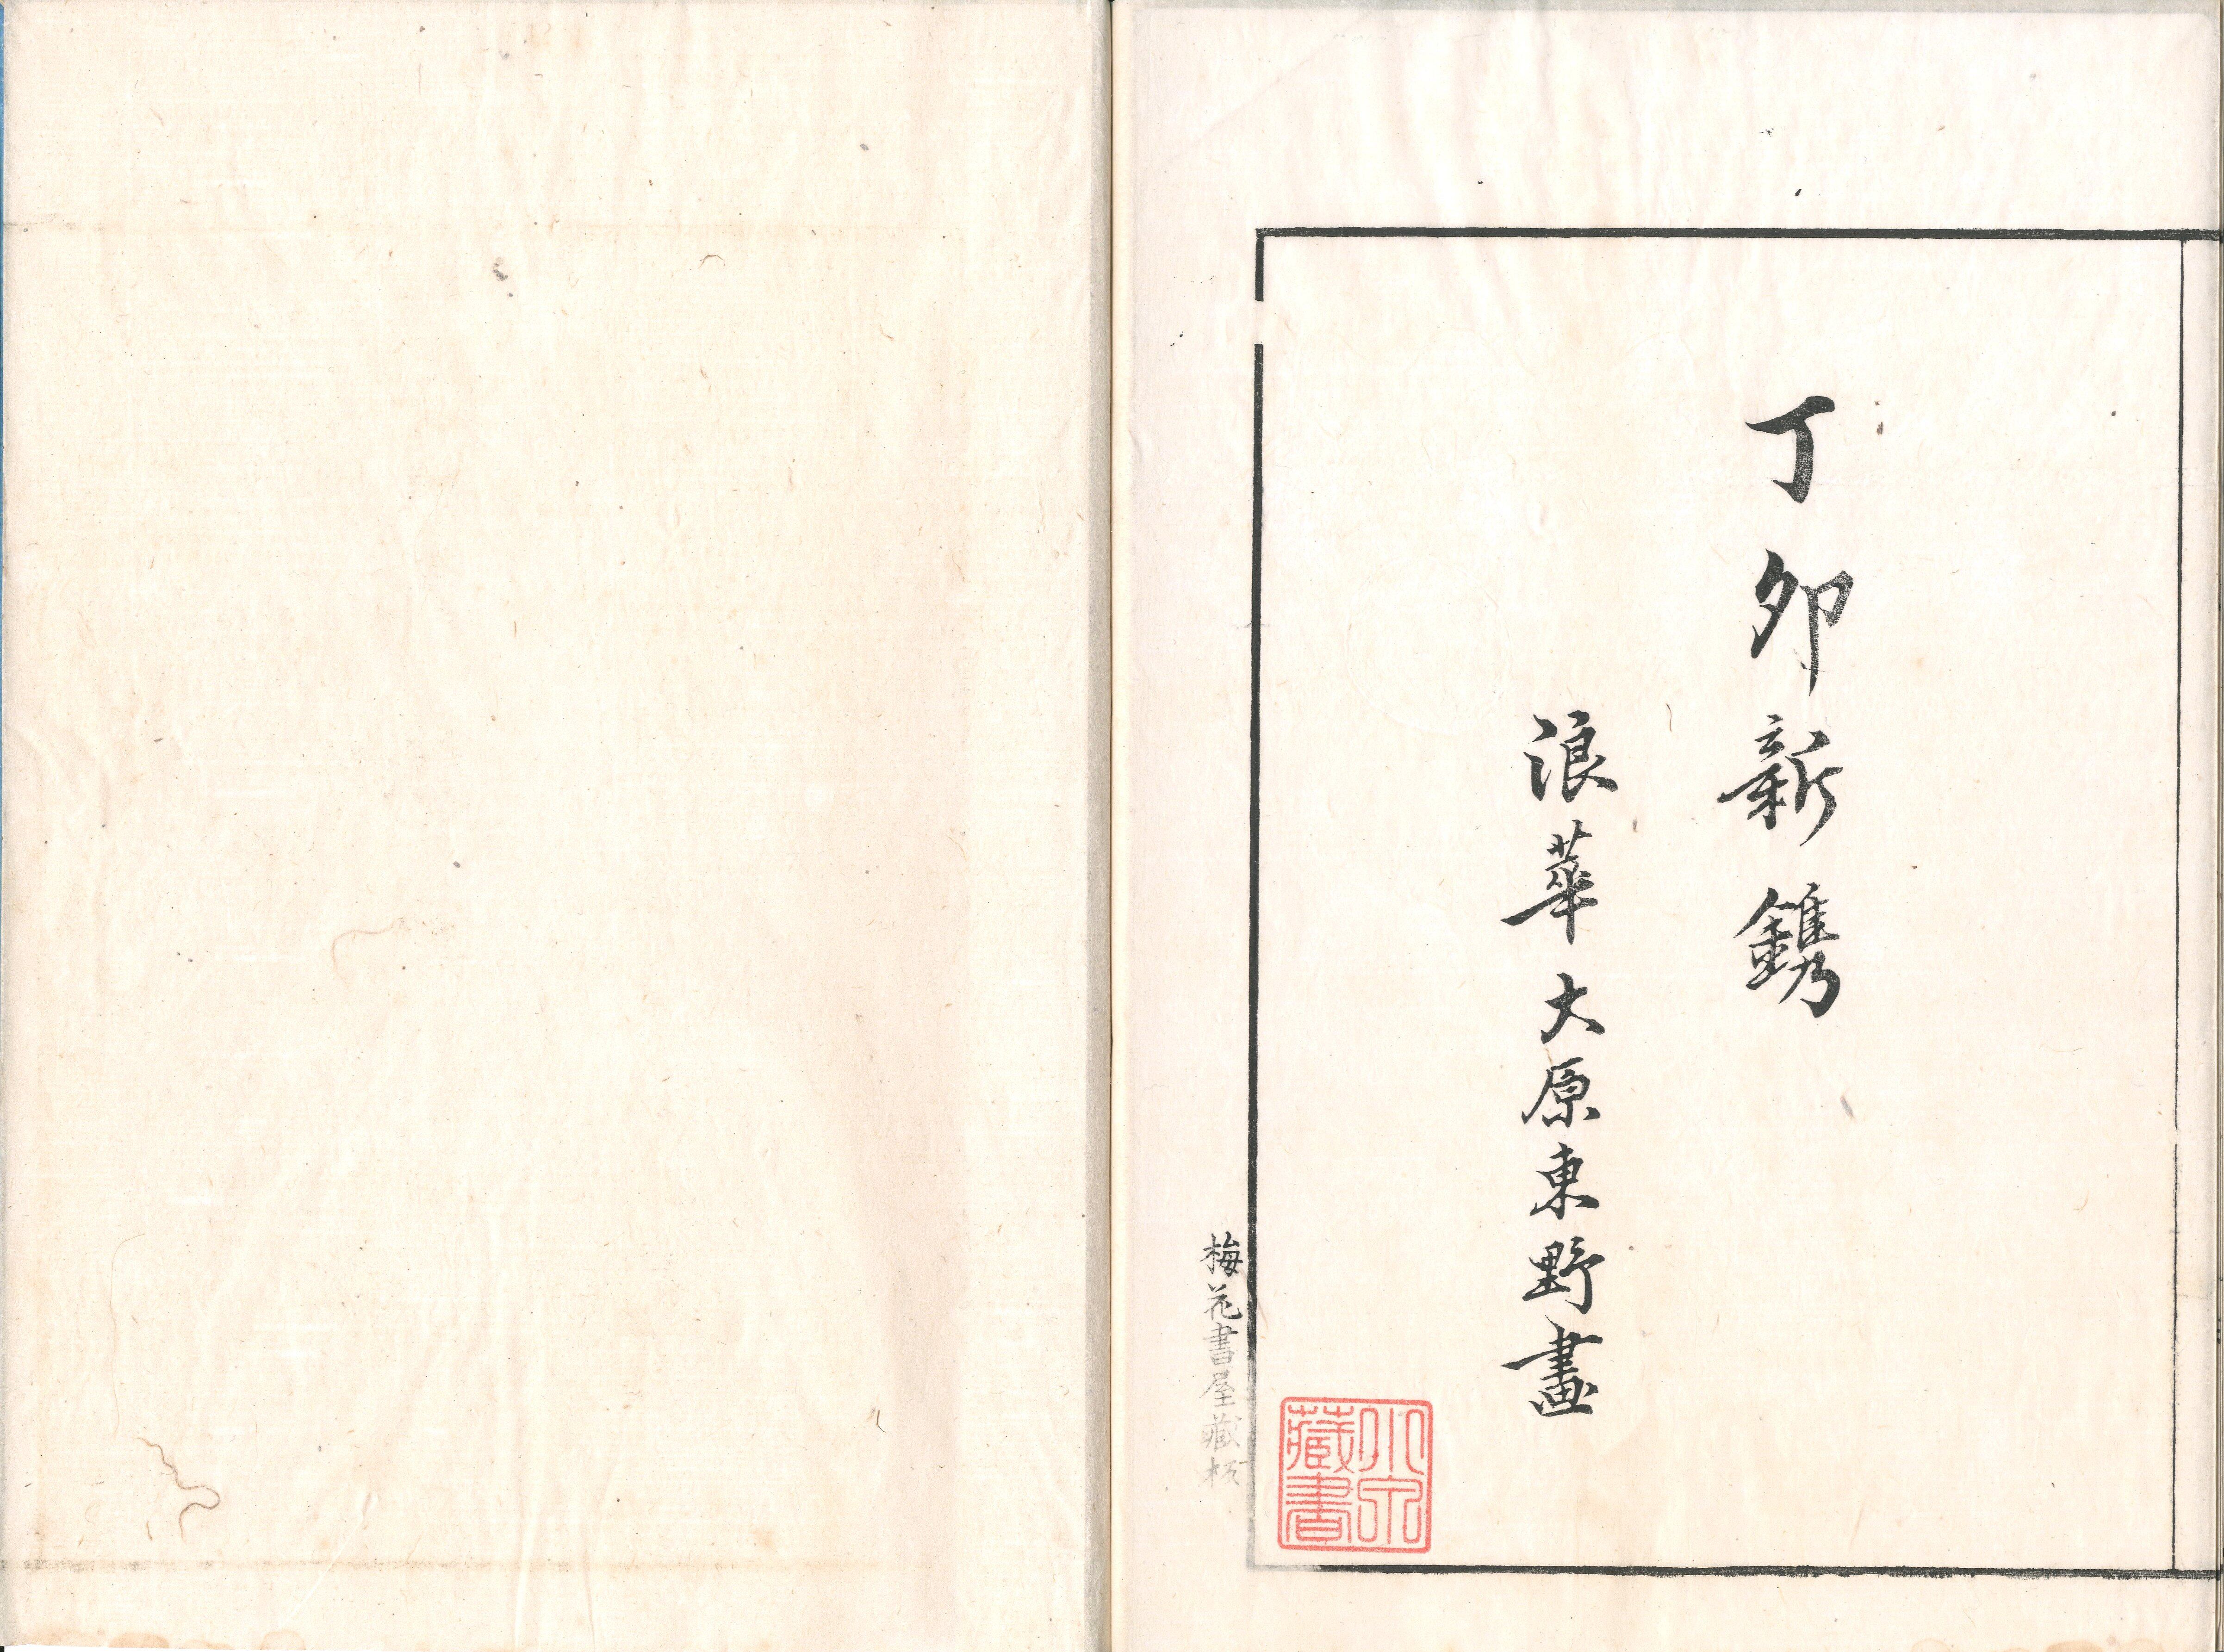 丁夘新鐫
浪華大原東野畫
藏書
梅花書屋藏板